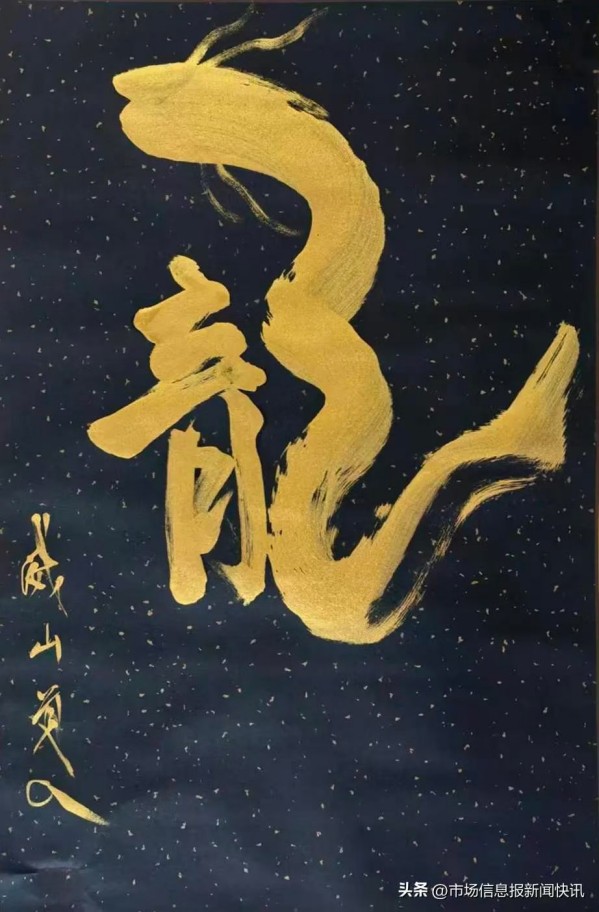 龍
山
头条 @市场信息报新闻快讯